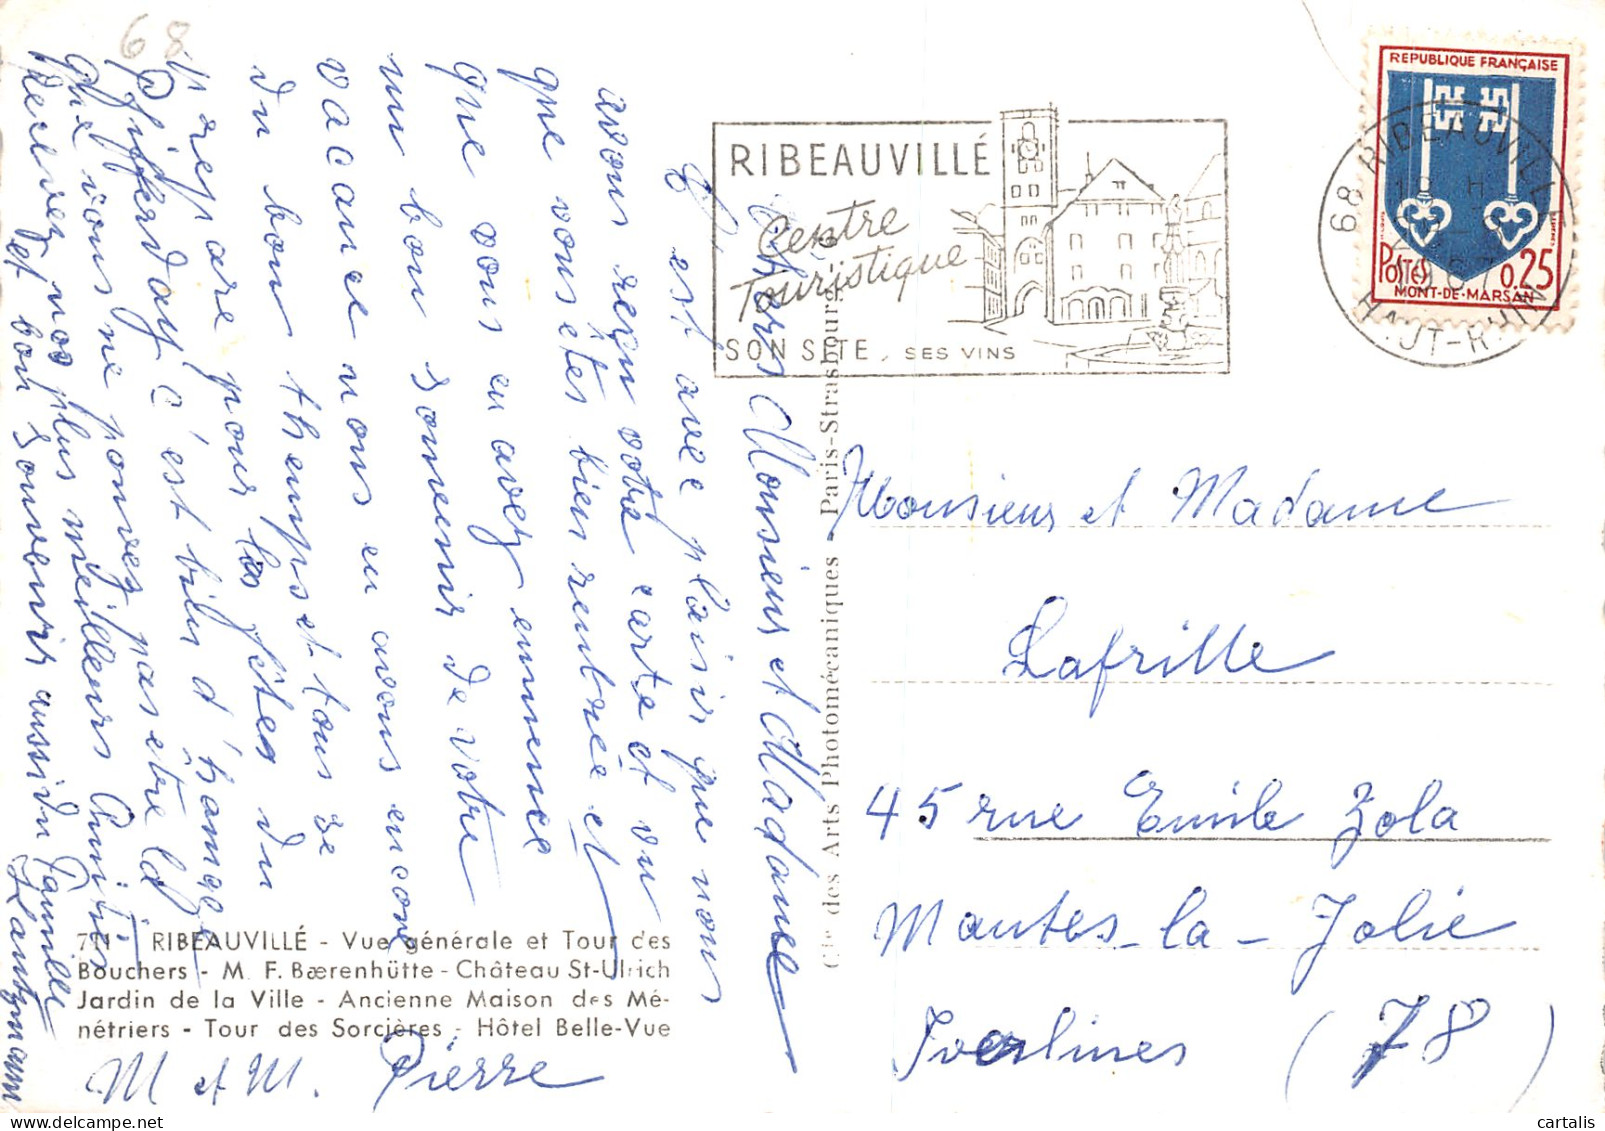 68
Chers Monsieur et Madame
C'est avec plaisir que nous
avons reçu votre carte et vu
que vous êtes bien rentrée et
que vous en avez emmence
un bon somenir de votre
vacance nous en avons encore
du bon themps et tous se
prepare pour les fêtes du
Pfifferday c'est bien d'
que vous ne pouvez pas être là
Recever nos plus meilleurs Amitiés
et bon Souvenir aussi du Famille
Lantzmann
M et M. Pierre
711 RIBEAUVILLÉ - Vue générale et Tour des
Bouchers - M. F. Bærenhütte - Château St-Ulrich
Jardin de la Ville - Ancienne Maison des Mé-
nétriers - Tour des Sorcières - Hôtel Belle-Vue
Cie des Arts Photomécaniques - Paris-Strasbourg
RIBEAUVILLÉ
Centre
Touristique
SON SITE, SES VINS
68 RIBEAUVILLE
HAUT-RHIN
REPUBLIQUE FRANÇAISE
POSTES 0,25
MONT-DE-MARSAN
Monsieur et Madame
Lafrille
45 rue Emile Zola
Mantes-la-Jolie
Yvelines (78)
cartalis